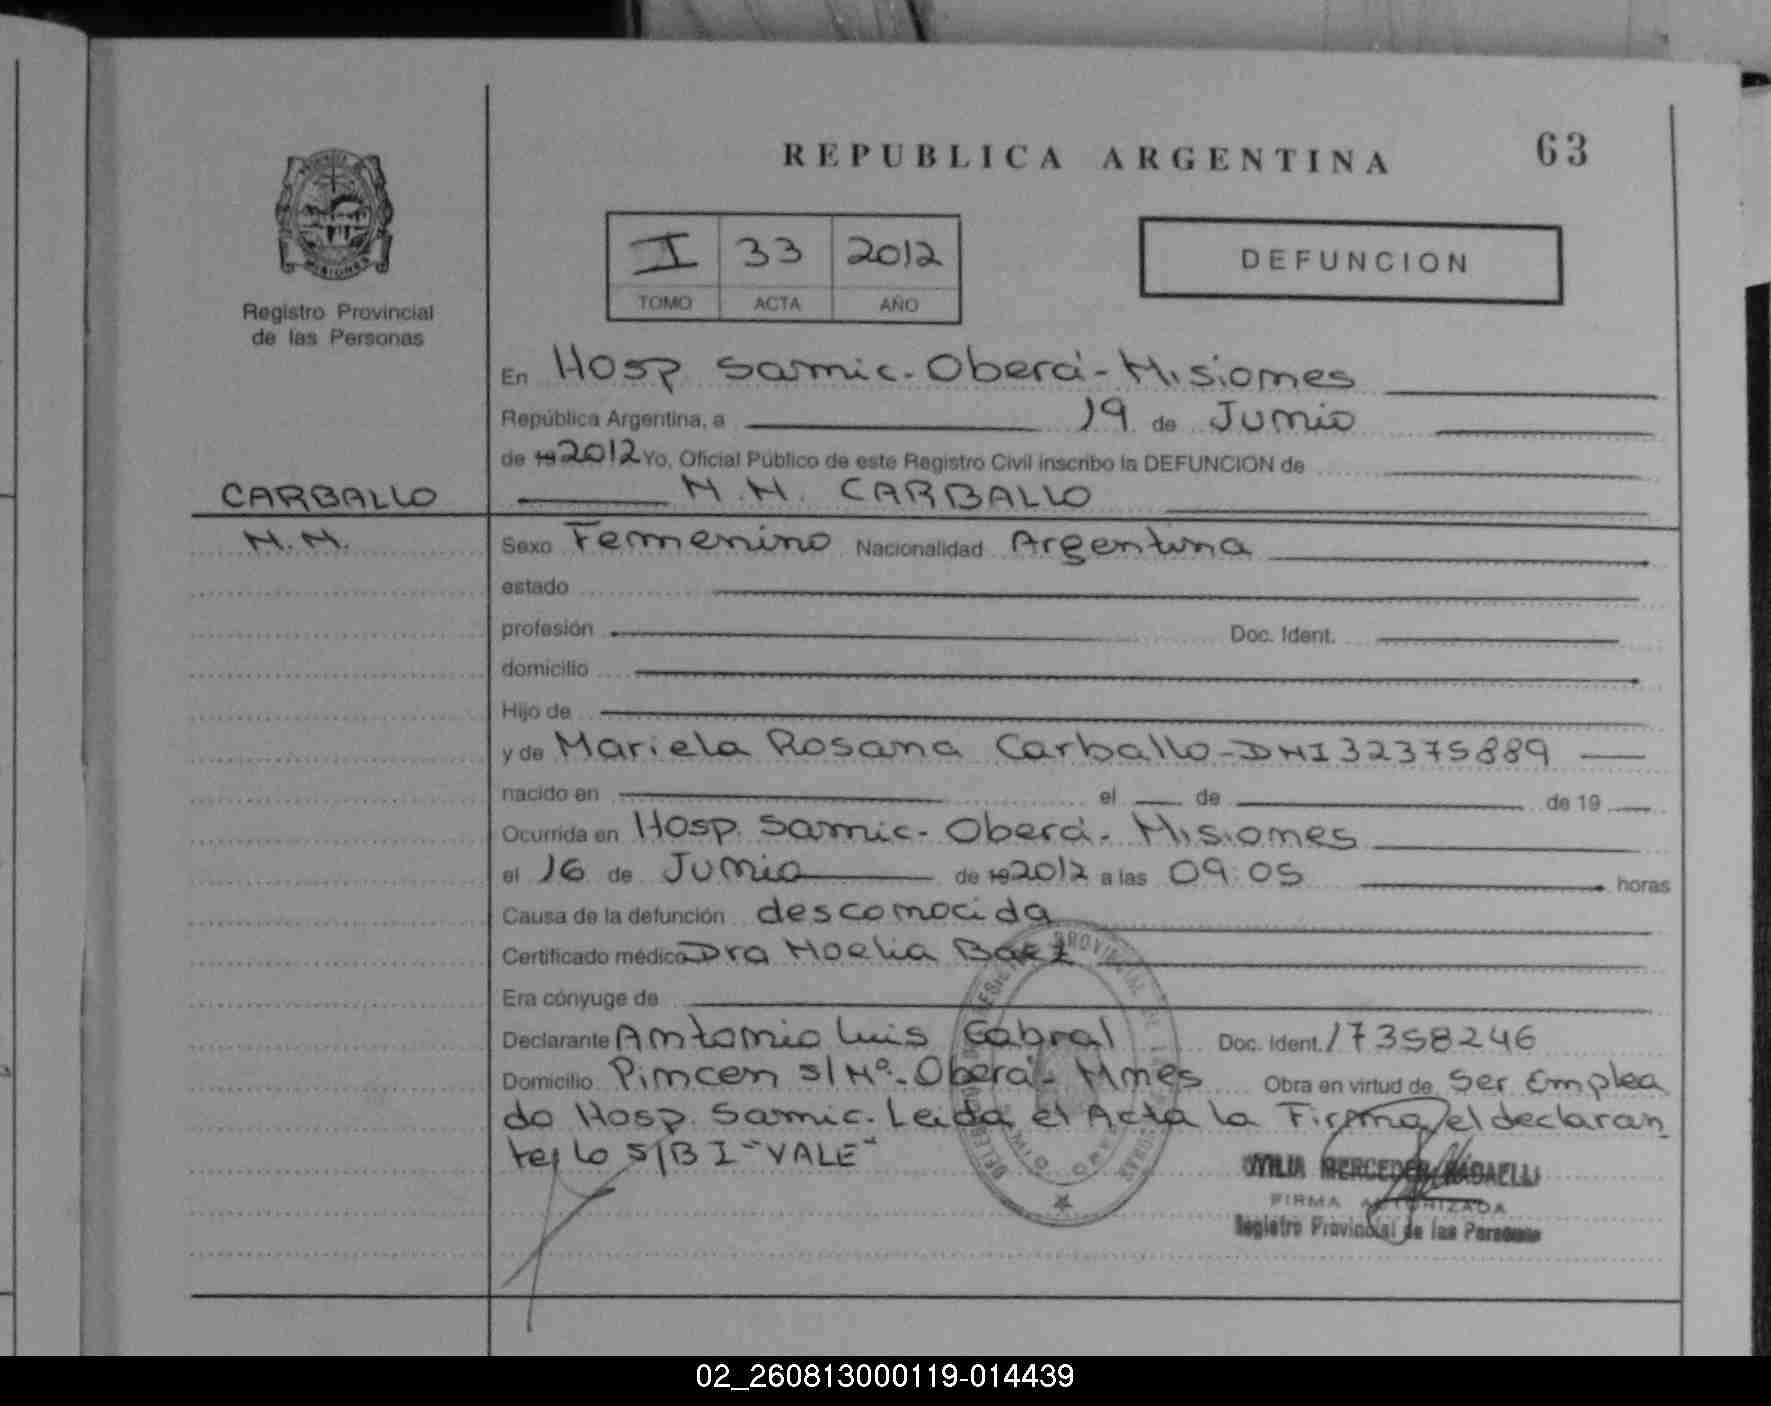 REPUBLICA ARGENTINA 63
I 33 2012
TOMO ACTA AÑO
DEFUNCION
MISIONES
Registro Provincial
de las Personas
En Hosp Samic. Oberá - Misiones
República Argentina, a 19 de Junio
de 19 2012 Yo, Oficial Público de este Registro Civil inscribo la DEFUNCION de
CARBALLO
N.N.
N.N. CARBALLO
Sexo Femenino Nacionalidad Argentina
estado
profesión Doc. Ident.
domicilio
Hijo de
y de Mariela Rosana Carballo - DNI 32375889
nacido en el de de 19
Ocurrida en Hosp. Samic - Oberá - Misiones
el 16 de Junio de 19 2012 a las 09:05 horas
Causa de la defunción desconocida
Certificado médico Dra Noelia Baez
Era cónyuge de
Declarante Antonio Luis Cabral Doc. Ident. 17358246
Domicilio Pincen s/Nº - Oberá - Mnes Obra en virtud de ser Emplea
do Hosp. Samic. Leida el Acta la Firma el declaran
te, lo S/B I "VALE"
MERCEDES
FIRMA AUTORIZADA
Registro Provincial de las Personas
02_260813000119-014439